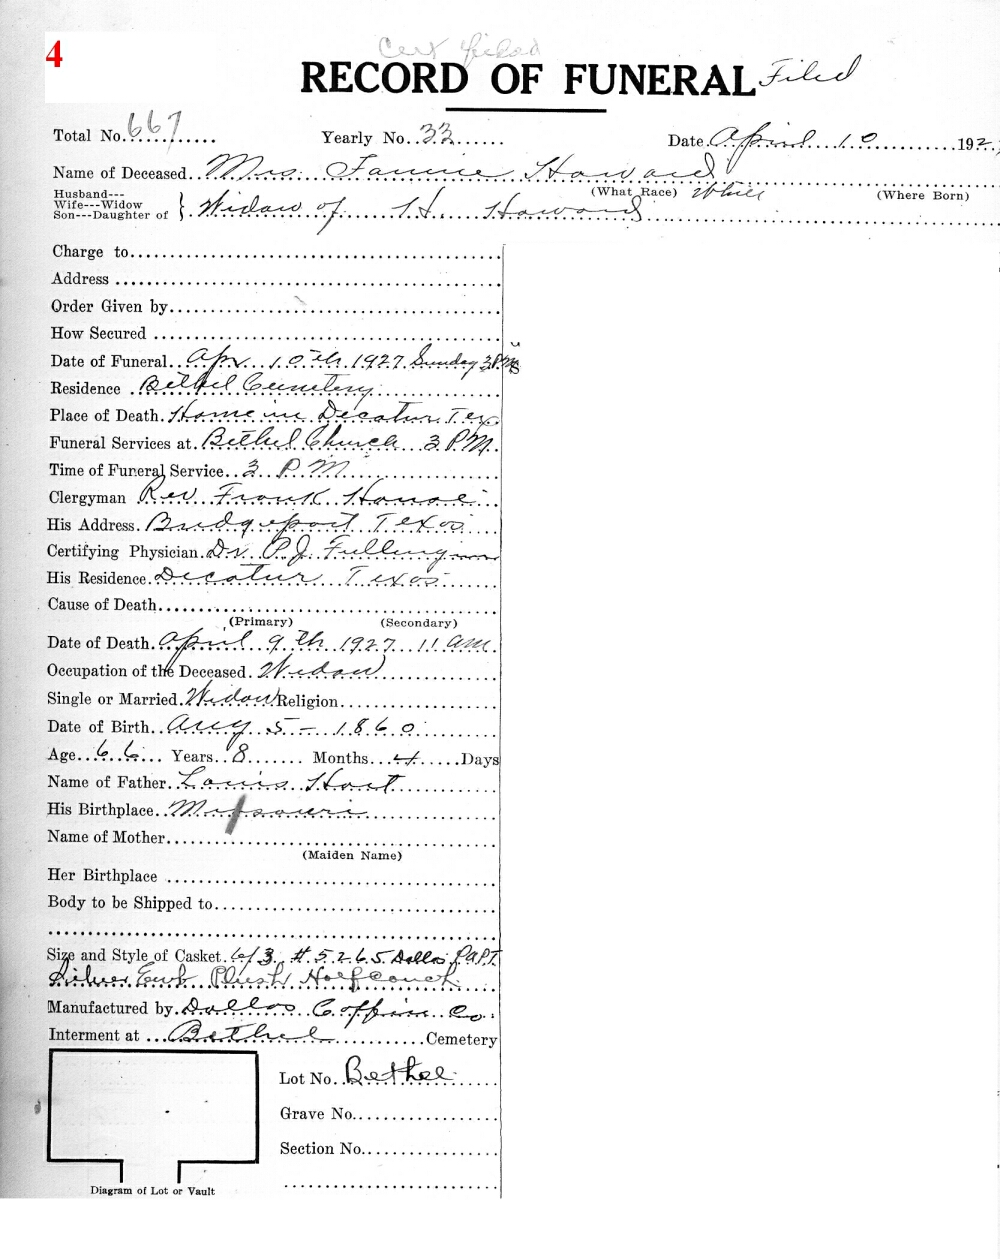 4
Cert filed
RECORD OF FUNERAL Filed
Total No. 667 Yearly No. 33 Date April 10 192
Name of Deceased Mrs Fannie Howard
Husband---
Wife---Widow
Son---Daughter of } Widow of H. Howard (What Race) White (Where Born)
Charge to
Address
Order Given by
How Secured
Date of Funeral Apr 10th 1927 Sunday 3 P.M.
Residence Bethel Cemetery
Place of Death. Home in Decatur Tex
Funeral Services at. Bethel Church 3 P.M.
Time of Funeral Service 3 P.M
Clergyman Rev Frank House
His Address. Bridgeport Texas
Certifying Physician. Dr. P.J. Fullingim
His Residence. Decatur Texas
Cause of Death
(Primary) (Secondary)
Date of Death. April 9th 1927 11 am.
Occupation of the Deceased. Widow
Single or Married. Widow Religion
Date of Birth Aug 5 - 1860
Age 66 Years 8 Months 4 Days
Name of Father. Louis Hart
His Birthplace. Missouri
Name of Mother
(Maiden Name)
Her Birthplace
Body to be Shipped to
Size and Style of Casket. 6/3 # 5265 Dallas
Silver Emb Plush Half Couch
Manufactured by. Dallas Coffin Co.
Interment at Bethel Cemetery
Lot No. Bethel
Grave No.
Section No.
Diagram of Lot or Vault